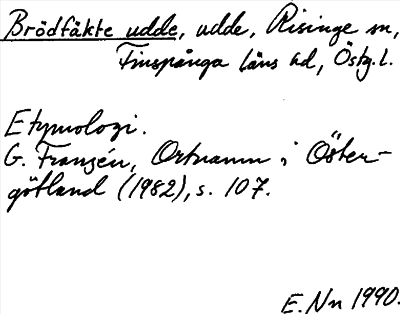 Brödfäkte udde, udde, Risinge sn,
Finspånga läns hd, Östg. l.
Etymologi.
G. Franzén, Ortnamn i Öster-
götland (1982), s. 107.
E. Nn 1990.